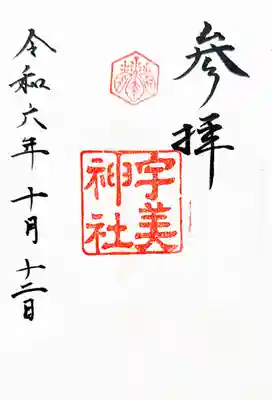 参拝
宇美
神社
令和六年十月十二日